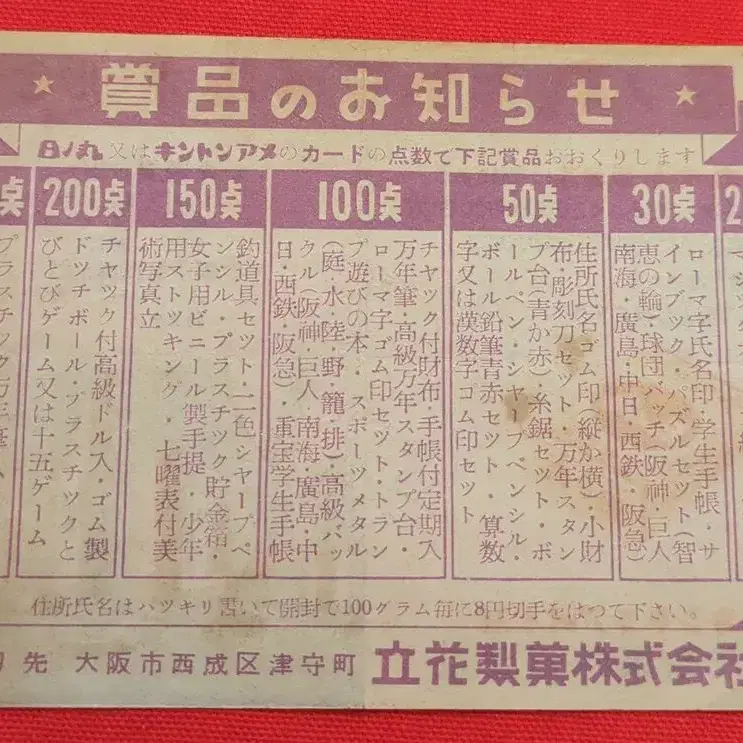 賞品のお知らせ
日ノ丸又はキントンアメのカードの点数て下記賞品おおくりします
30点
ローマ字氏名印・学生手帳・サ
インブック・パズルセット(智
恵の輪)・球団バッチ(阪神・巨人
南海・廣島・中日・西鉄・阪急)
50点
住所氏名ゴム印(縦か横)・小財
布・彫刻刀セット・万年スタン
プ台(青か赤)・糸鋸セット・ボ
ールペン・シャープペンシル・
ボール鉛筆青赤セット・算数
字又は漢数字ゴム印セット
100点
チヤツク付財布・手帳付定期入
万年筆・高級万年スタンプ台・
ローマ字ゴム印セット・トラン
プ遊びの本・スポーツメタル
(庭・水・陸・野・籠・排)・高級バッ
クル(阪神・巨人・南海・廣島・中
日・西鉄・阪急)・重宝学生手帳
150点
釣道具セット・二色シャープペ
ンシル・プラスチック貯金箱・
女子用ビニール製手提・少年
用ストツキング・七曜表付美
術写真立
200点
チヤツク付高級ドル入・ゴム製
ドツチボール・プラスチツクと
びとびゲーム又は十五ゲーム
住所氏名はハツキリ書いて開封で100グラム毎に8円切手をはつて下さい。
先 大阪市西成区津守町 立花製菓株式会社